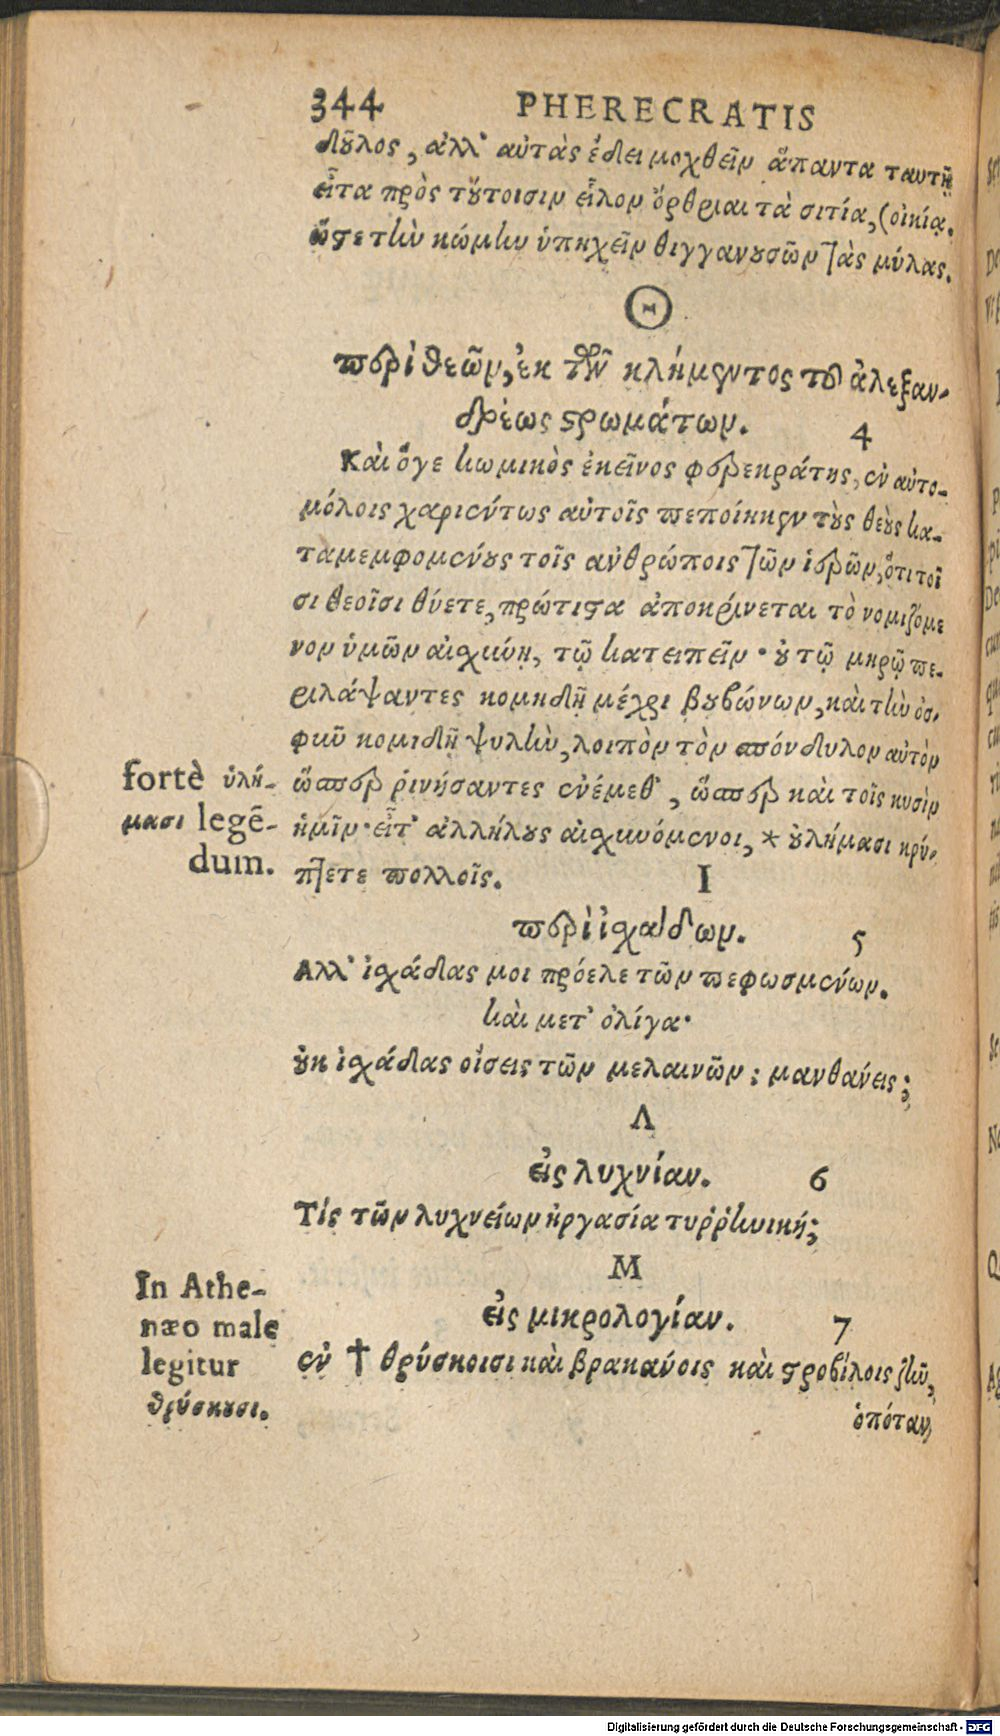 344 PHERECRATIS
δοῦλος, ἀλλ' αὐτὰς ἔδει μοχθεῖν ἅπαντα ταυτῇ
εἶτα πρὸς τούτοισιν εἶλον ὄρθριαι τὰ σιτία, (οἰκίᾳ.
ὥστε τὴν κώμην ὑπηχεῖν θιγγανουσῶν τὰς μύλας.
Θ
περὶ θεῶν, ἐκ τῶν κλήμεντος τοῦ ἀλεξαν-
δρέως στρωμάτων. 4
Καὶ ὅγε κωμικὸς ἐκεῖνος φερεκράτης, ἐν αὐτο-
μόλοις χαριέντως αὐτοῖς πεποίηκεν τοὺς θεοὺς κα-
ταμεμφομένους τοῖς ἀνθρώποις τῶν ἱερῶν, ὅτι τοῖ
σι θεοῖσι θύετε, πρώτιστα ἀποκρίνεται τὸ νομιζόμε
νον ὑμῶν αἰσχύνῃ, τῷ κατειπεῖν· οὐ τῷ μηρῷ πε-
ριλάψαντες κομηδῇ μέχρι βουβώνων, καὶ τὴν ὀσ-
φῦν κομιδῇ ψυλὴν, λοιπὸν τὸν σπόνδυλον αὐτὸν
ὥσπερ ῥινήσαντες ἐνέμεθ', ὥσπερ καὶ τοῖς κυσὶν
ἡμῖν· εἶτ' ἀλλήλους αἰσχυνόμενοι, * οὐλήμασι κρύ-
πτετε πολλοῖς.
fortè ὑλή-
μασι legē-
dum.
Ι
περὶ ἰσχάδων. 5
Ἀλλ' ἰσχάδας μοι πρόελε τῶν πεφωσμένων.
καὶ μετ' ὀλίγα·
οὐκ ἰσχάδας οἴσεις τῶν μελαινῶν; μανθάνεις;
Λ
εἰς λυχνίαν. 6
Τίς τῶν λυχνείων ἠργασία τυῤῥηνική;
Μ
εἰς μικρολογίαν. 7
ἐν † θρύσκοισι καὶ βρακάνοις καὶ στροβίλοις ζῆν,
ὁπόταν
In Athe-
næo male
legitur
θρύσκουσι.
Digitalisierung gefördert durch die Deutsche Forschungsgemeinschaft - DFG